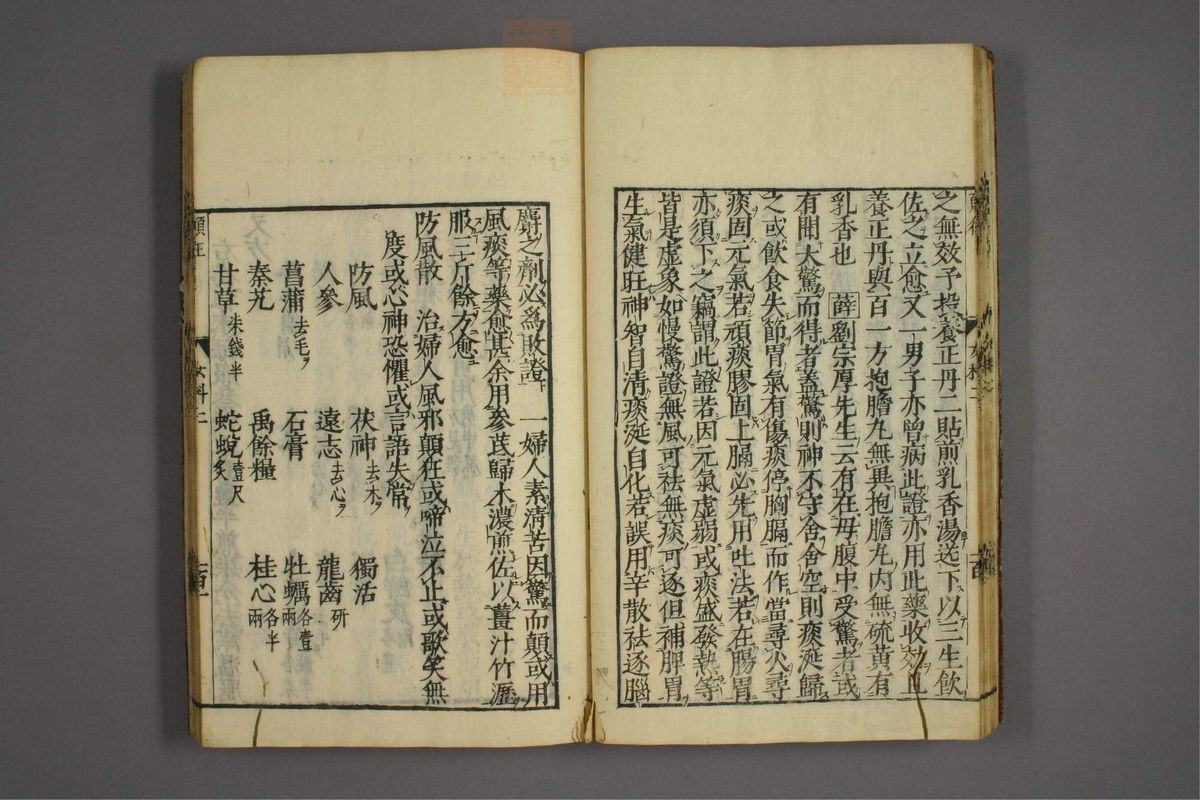 之無效予投養正丹二貼煎乳香湯送下以三生飲
佐之立愈又一男子亦曾病此證亦用此藥收效且
養正丹與百一方抱膽丸無異抱膽丸内無硫黄有
乳香也 薛 劉宗厚先生云有在母腹中受驚者或
有聞大驚而得者蓋驚則神不守舍舍空則痰涎歸
之或飲食失節胃氣有傷痰停胸膈而作當尋火尋
痰固元氣若頑痰膠固上膈必先用吐法若在腸胃
亦須下之竊謂此證若因元氣虚弱或痰盛發熱等
皆是虚象如慢驚證無風可祛無痰可逐但補脾胃
生氣健旺神智自清痰涎自化若誤用辛散祛逐腦
麝之劑必為敗證 一婦人素清苦因驚而顛或用
風痰等藥愈甚余用參芪歸朮濃煎佐以薑汁竹瀝
服三斤餘方愈
防風散 治婦人風邪顛狂或啼泣不止或歌笑無
度或心神恐懼或言語失常
防風 茯神去木 獨活
人參 遠志去心 龍齒研
菖蒲去毛 石膏 牡蠣各壹兩
秦艽 禹餘糧 桂心各半兩
甘草朱錢半 蛇蛻壹尺炙
顛狂 女科二